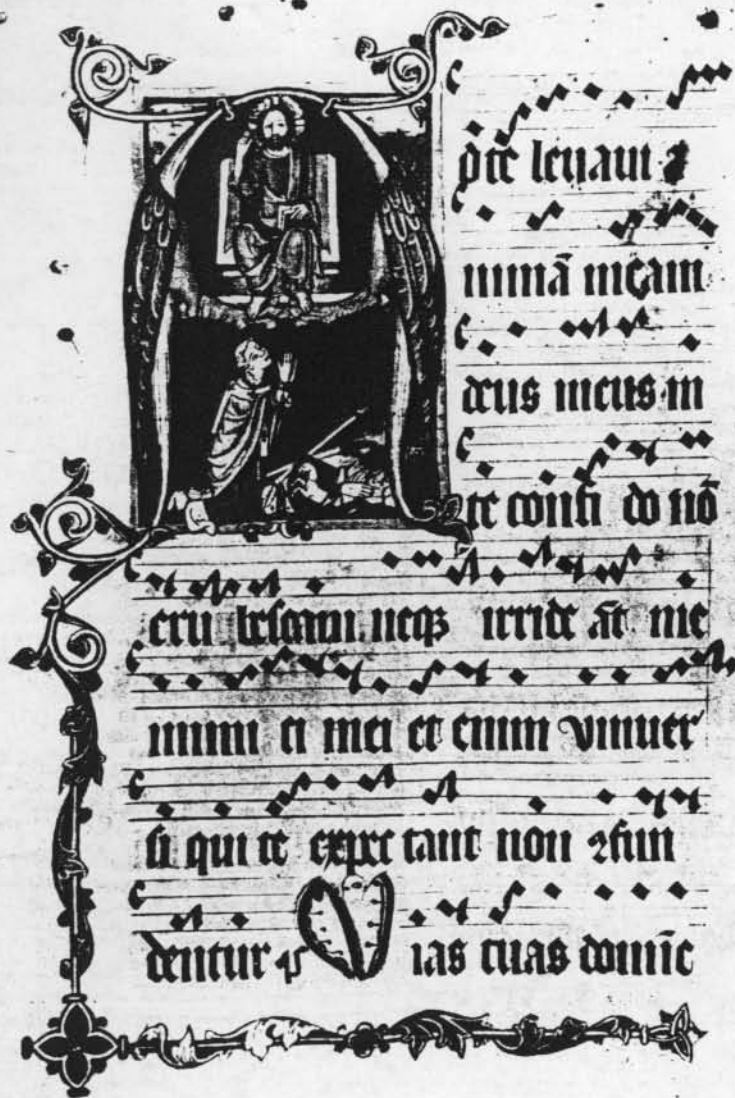 A
d te leuaui a
nimā meam
deus meus in
te confi do nō
eru bescam neqȝ irride āt me
inimi ci mei et enim vniuer
si qui te expec tant non ꝯfun
dentur ps Vias tuas domīe